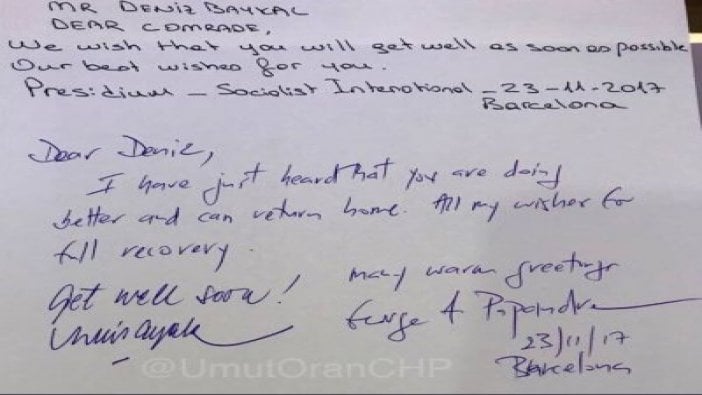 MR DENİZ BAYKAL
DEAR COMRADE,
We wish that you will get well as soon as possible
Our best wishes for you.
Presidium - Socialist International - 23-11-2017
Barcelona
Dear Deniz,
I have just heard that you are doing
better and can return home. All my wishes for
full recovery.
many warm greetings
Get well soon!
George A Papandre
23/11/17
Barcelona
@UmutOranCHP